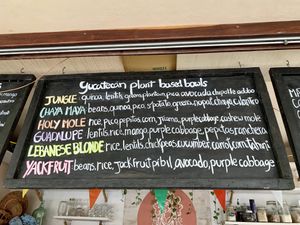 Yucatecan plant based bowls
JUNGLE quinoa, lentils, green plantain, pico, avocado, chipotle adobo
CHAYA MAYA beans, quinoa, pico, s'potato, greens, nopal, chaya, cilantro
HOLY MOLE rice, pico, pepitas, corn, jicama, purple cabbage, cashew mole
GUADALUPE lentils, rice, mango, purple cabbage, pepitas, ranchera
LEBANESE BLONDE rice, lentils, chickpeas, cucumber, carrot, corn, tahini
YACKFRUIT beans, rice, jackfruit pibil, avocado, purple cabbage